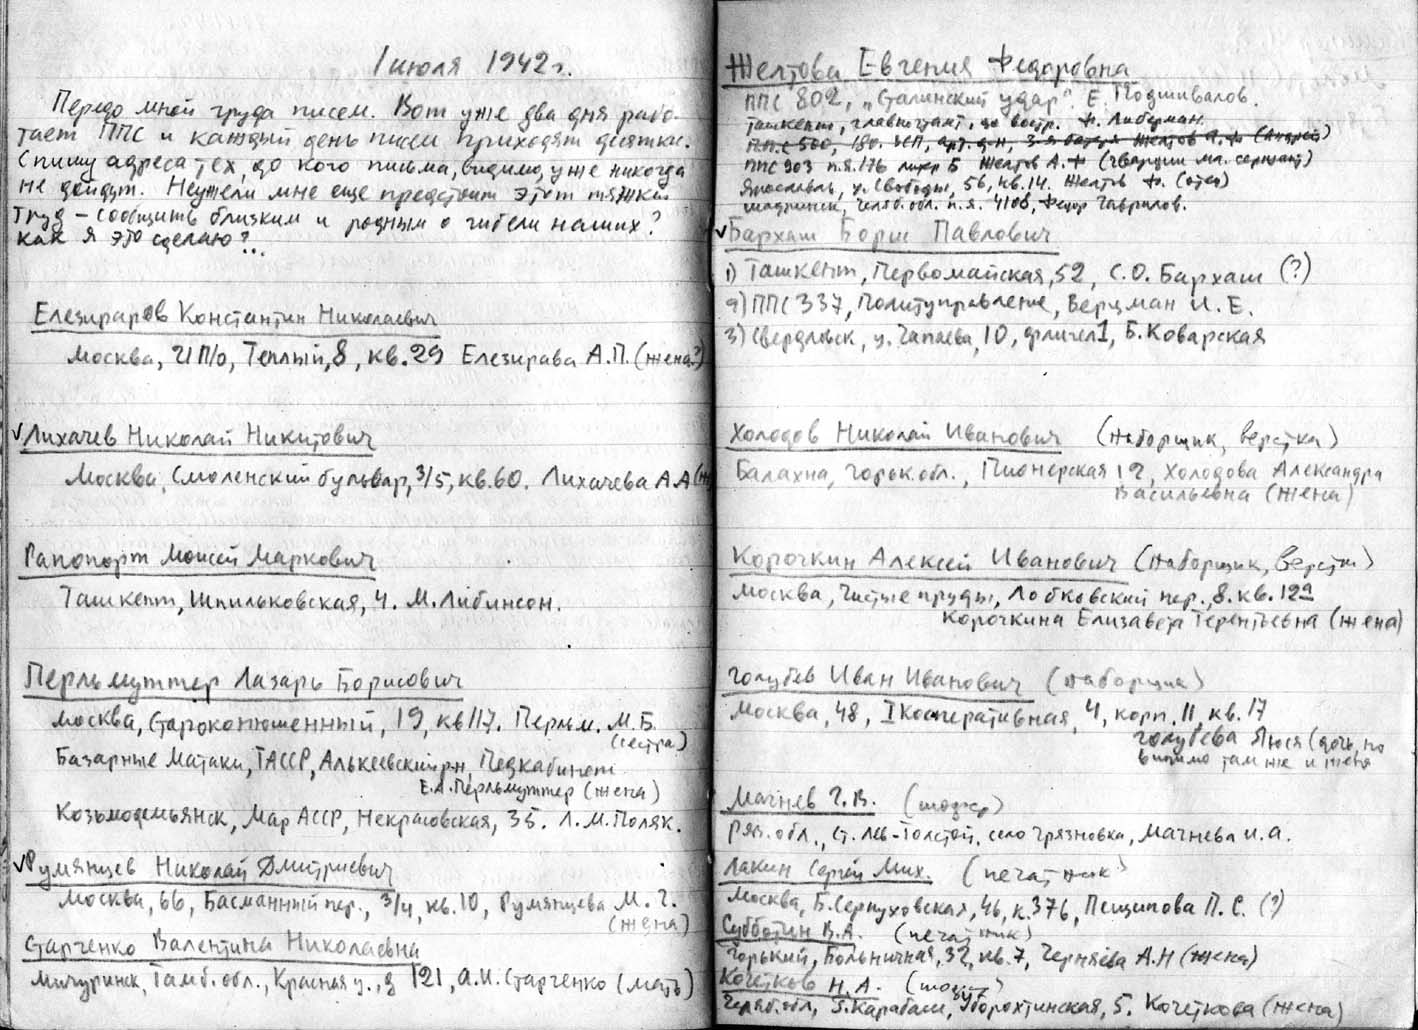 1 июля 1942 г.
Передо мной груда писем. Вот уже два дня рабо-
тает ППС и каждый день писем приходят десятки.
Спишу адреса тех, до кого письма, видимо, уже никогда
не дойдут. Неужели мне еще предстоит этот тяжкий
труд – сообщить близким и родным о гибели наших?
Как я это сделаю?...
Елезираров Константин Николаевич
Москва, 21 П/о, Теплый, 8, кв. 29 Елезирава А.П. (жена?)
Лихачев Николай Никитович
Москва, Смоленский бульвар, 3/5, кв. 60. Лихачева А А
Рапопорт Моисей Маркович
Ташкент, Шпильковская, 4. М. Либинсон.
Перльмуттер Лазарь Борисович
Москва, Староконюшенный, 19, кв 117. Перльм. М.Б.
(сестра)
Базарные Матаки, ТАССР, Алькеевский рн, Педкабинет
Е.А. Перльмуттер (жена)
Козьмодемьянск, Мар АССР, Некрасовская, 35. Л.М. Поляк.
Румянцев Николай Дмитриевич
Москва, 66, Басманный пер., 3/4, кв. 10, Румянцева М. Г.
(жена)
Старченко Валентина Николаевна
Мичуринск, Тамб. обл., Красная у., д 121, А.И. Старченко (мать)
Желтова Евгения Федоровна
ППС 802, „Сталинский удар". Е. Подшивалов.
Ташкент, главпочтамт, до востр. Ф. Либерман.
ППС 500, 180. З-я батарея Желтов А.Ф (Андрей)
ППС 903 п.я. 176 литер Б Желтов А.Ф (гвардии мл. сержант)
Ярославль, у. Свободы, 56, кв. 14. Желтов Ф. (отец)
Шадринск, Челяб. обл. п.я. 4108, Федор Гаврилов.
Бархаш Борис Павлович
1) Ташкент, Первомайская, 52, С.О. Бархаш (?)
2) ППС 337, Политуправление, Верцман И. Е.
3) Свердловск, у. Чапаева, 10, флигел 1, Б. Коварская
Холодов Николай Иванович (наборщик, верстка)
Балахна, Горьк. обл., Пионерская 12, Холодова Александра
Васильевна (жена)
Корочкин Алексей Иванович (наборщик, верстк)
Москва, Чистые пруды, Лобковский пер., 8. кв. 122
Корочкина Елизавета Терентьевна (жена)
Голубев Иван Иванович (наборщик)
Москва, 48, I Кооперативная, 4, корп. II, кв. 17
Голубева Люся (дочь, по
видимо там же и жена
Мачнев Г. В. (шофер)
Ряз. обл., ст. Лев-Толстой, село Грязновка, Мачнева И. А.
Лакин Сергей Мих. (печатник)
Москва, Б. Серпуховская, 46, к. 376, Пещипова П. С. (?)
Субботин В.А. (печатник)
Горький, Больничная, 32, кв. 7, Черняева А.Н (жена)
Кочетков Н. А. (шофер)
Челяб. обл, Карабаш, 5. Кочеткова (жена)